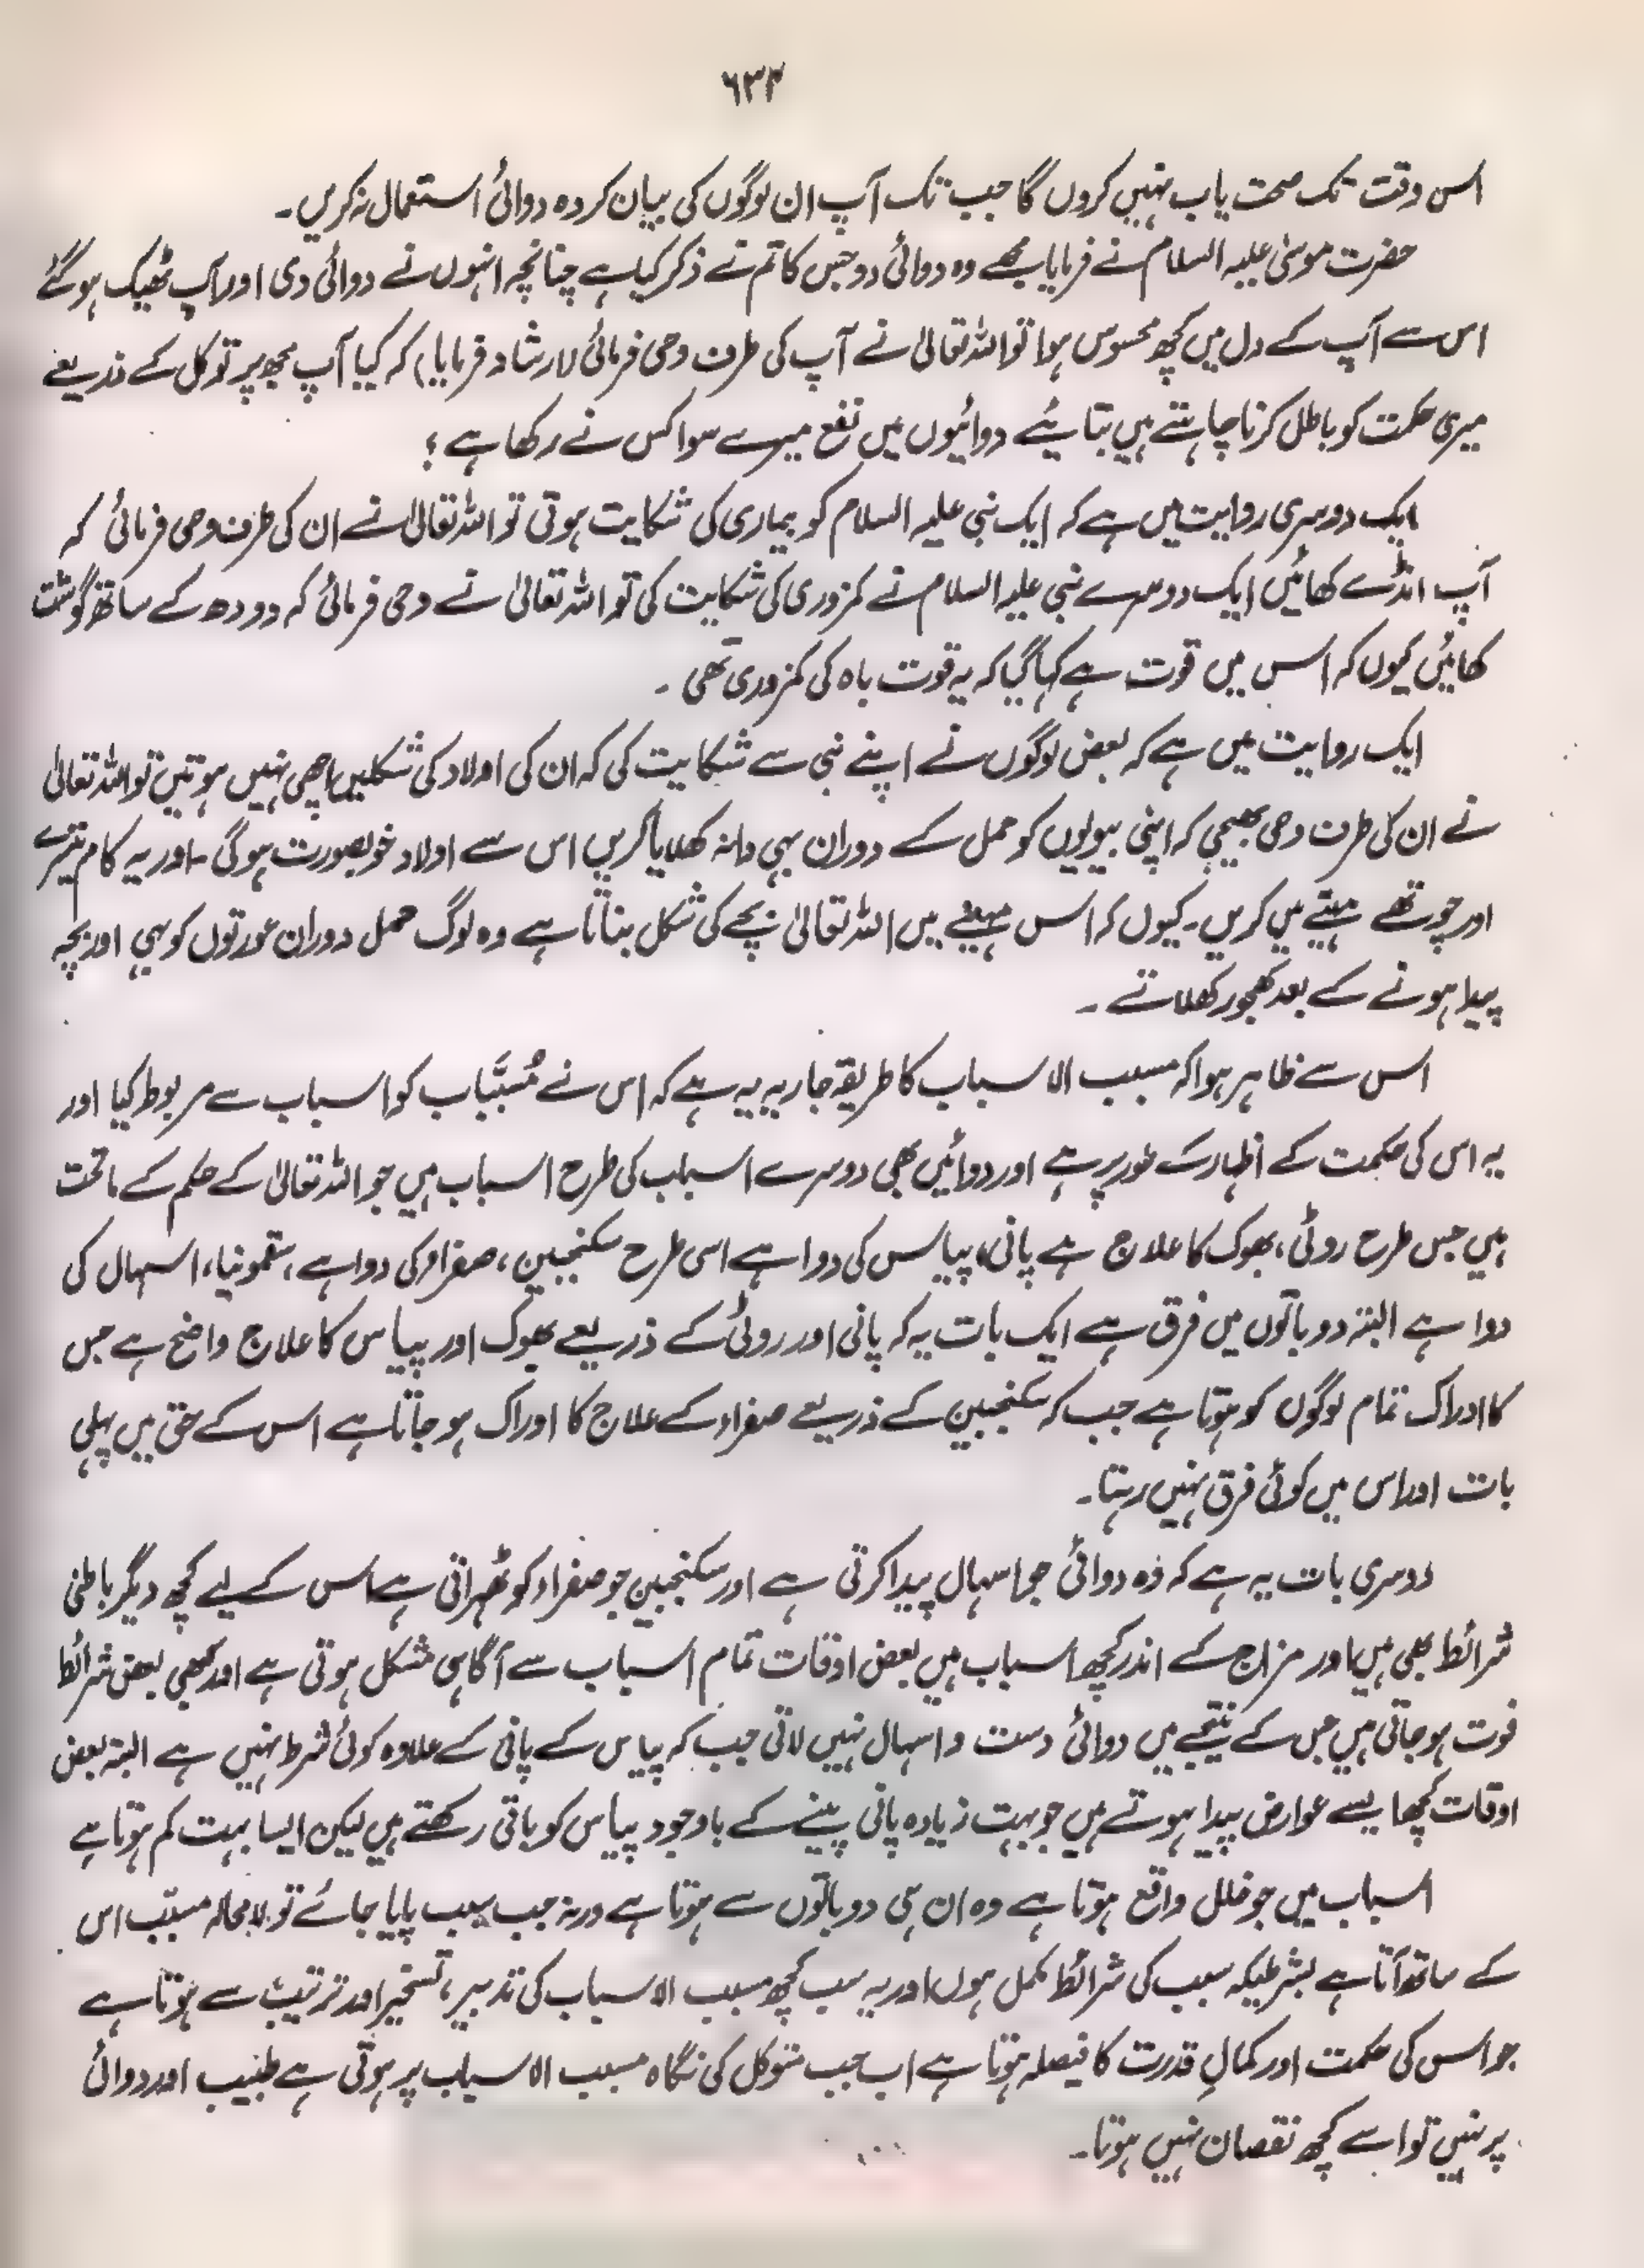 ۶۳۴
اس وقت تک صحت یاب نہیں کروں گا جب تک آپ ان لوگوں کی بیان کردہ دوائی استعمال نہ کریں۔
حضرت موسیٰ علیہ السلام نے فرمایا مجھے وہ دوائی دو جس کا تم نے ذکر کیا ہے چنانچہ انہوں نے دوائی دی اور آپ ٹھیک ہو گئے
اس سے آپ کے دل میں کچھ محسوس ہوا تو اللہ تعالیٰ نے آپ کی طرف وحی فرمائی (ارشاد فرمایا) کہ کیا آپ مجھ پر توکل کے ذریعے
میری حکمت کو باطل کرنا چاہتے ہیں بتائیے دوائیوں میں نفع میرے سوا کس نے رکھا ہے ؟
ایک دوسری روایت میں ہے کہ ایک نبی علیہ السلام کو بیماری کی شکایت ہوتی تو اللہ تعالیٰ نے ان کی طرف وحی فرمائی کہ
آپ انڈے کھائیں ایک دوسرے نبی علیہ السلام نے کمزوری کی شکایت کی تو اللہ تعالیٰ نے وحی فرمائی کہ دودھ کے ساتھ گوشت
کھائیں کیوں کہ اس میں قوت ہے کہا گیا کہ یہ قوت باہ کی کمزوری تھی ۔
ایک روایت میں ہے کہ بعض لوگوں نے اپنے نبی سے شکایت کی کہ ان کی اولاد کی شکلیں اچھی نہیں ہوتیں تو اللہ تعالیٰ
نے ان کی طرف وحی بھیجی کہ اپنی بیویوں کو حمل کے دوران بہی دانہ کھلایا کریں اس سے اولاد خوبصورت ہوگی ۔ اور یہ کام تیسرے
اور چوتھے مہینے میں کریں۔ کیوں کہ اس مہینے میں اللہ تعالیٰ بچے کی شکل بناتا ہے وہ لوگ حمل دوران عورتوں کو بہی اور بچہ
پیدا ہونے کے بعد کھجور کھلاتے ۔
اس سے ظاہر ہوا کہ مسبب الاسباب کا طریقہ جاریہ یہ ہے کہ اس نے مُسبَّباب کو اسباب سے مربوط کیا اور
یہ اس کی حکمت کے اظہار کے طور پر ہے اور دوائیں بھی دوسرے اسباب کی طرح اسباب ہیں جو اللہ تعالیٰ کے حکم کے ماتحت
ہیں جس طرح روٹی، بھوک کا علاج ہے پانی، پیاس کی دوا ہے اسی طرح سکنجبین، صفراء کی دوا ہے، سقمونیا، اسہال کی
دوا ہے البتہ دو باتوں میں فرق ہے ایک بات یہ کہ پانی اور روٹی کے ذریعے بھوک اور پیاس کا علاج واضح ہے جس
کا ادراک تمام لوگوں کو ہوتا ہے جب کہ سکنجبین کے ذریعے صفراء کے علاج کا ادراک ہو جاتا ہے اس کے حق میں پہلی
بات اور اس میں کوئی فرق نہیں رہتا۔
دوسری بات یہ ہے کہ وہ دوائی جو اسہال پیدا کرتی ہے اور سکنجبین جو صفراء کو ٹھہراتی ہے اس کے لیے کچھ دیگر باطنی
شرائط بھی ہیں اور مزاج کے اندر کچھ اسباب ہیں بعض اوقات تمام اسباب سے آگاہی مشکل ہوتی ہے اور کبھی بعض شرائط
فوت ہو جاتی ہیں جس کے نتیجے میں دوائی دست و اسہال نہیں لاتی جب کہ پیاس کے پانی کے علاوہ کوئی شرط نہیں ہے البتہ بعض
اوقات کچھ ایسے عوارض پیدا ہوتے ہیں جو بہت زیادہ پانی پینے کے باوجود پیاس کو باقی رکھتے ہیں لیکن ایسا بہت کم ہوتا ہے
اسباب میں جو خلل واقع ہوتا ہے وہ ان ہی دو باتوں سے ہوتا ہے ورنہ جب سبب پایا جائے تو لا محالہ مسبّب اس
کے ساتھ آتا ہے بشرطیکہ سبب کی شرائط مکمل ہوں اور یہ سب کچھ مسبب الاسباب کی تدبیر، تسخیر اور ترتیب سے ہوتا ہے
جو اس کی حکمت اور کمالِ قدرت کا فیصلہ ہوتا ہے اب جب متوکل کی نگاہ مسبب الاسباب پر ہوتی ہے طبیب اور دوائی
پر نہیں تو اسے کچھ نقصان نہیں ہوتا۔